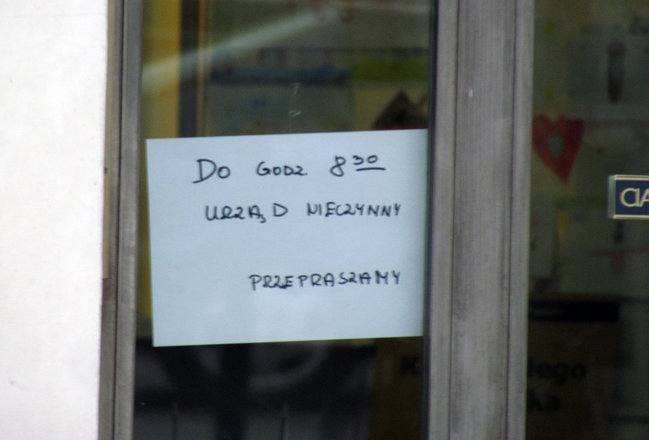 DO GODZ 8³⁰
URZĄD NIECZYNNY
PRZEPRASZAMY
CIA